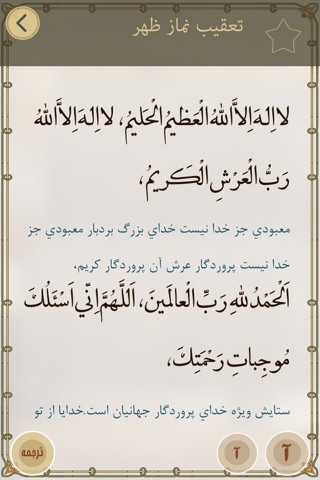 تعقیب نماز ظهر
لا اِلهَ اِلاَّ اللهُ الْعَظيمُ الْحَليمُ، لا اِلهَ اِلاَّ اللهُ
رَبُّ الْعَرْشِ الْكَريمُ،
معبودي جز خدا نيست خداي بزرگ بردبار معبودي جز
خدا نيست پروردگار عرش آن پروردگار كريم،
اَلْحَمْدُ للهِ رَبِّ الْعالَمينَ، اَللّهُمَّ اِنّي اَسْئَلُكَ
مُوجِباتِ رَحْمَتِكَ،
ستايش ويژه خداي پروردگار جهانيان است.خدايا از تو
ترجمه
آ
آ